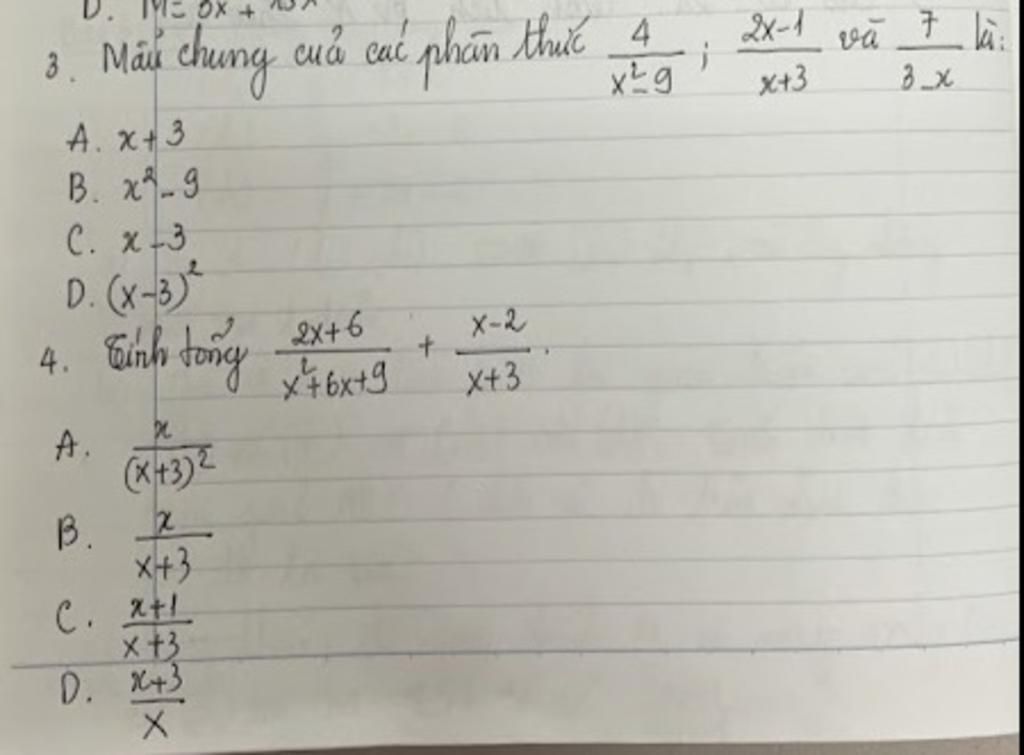 D. M = 3x +
3. Mẫu chung của các phân thức 4/(x²-9) ; (2x-1)/(x+3) và 7/(3-x) là:
A. x+3
B. x²-9
C. x-3
D. (x-3)²
4. Tính tổng (2x+6)/(x²+6x+9) + (x-2)/(x+3).
A. x/(x+3)²
B. x/(x+3)
C. (x+1)/(x+3)
D. (x+3)/x